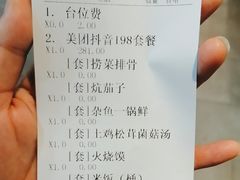 1. 台位费
X0.0 2.00
2. 美团抖音198套餐
X1.0 281.00
|套|捞菜排骨
X1.0 0.00
|套|炕茄子
X1.0 0.00
|套|杂鱼一锅鲜
X1.0 0.00
|套|土鸡松茸菌菇汤
X1.0 0.00
|套|火烧馍
X1.0 0.00
|套|米饭(桶)